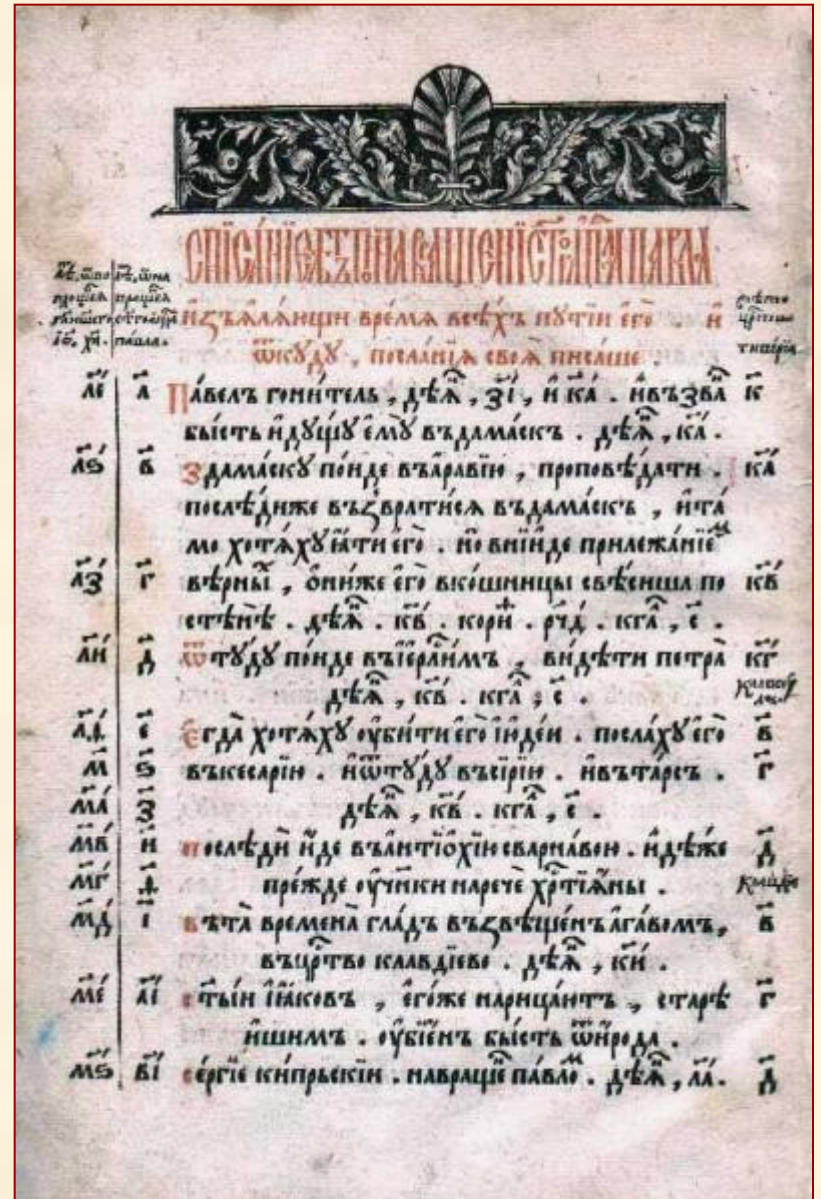 СПИСА́НІЕ ЛѢ́ТЪ ПО НАВРАЩЕ́НІИ СТ҃ГО АП҃ЛА ПА́ВЛА
и҆з̾ѧвлѧ́ющи вре́мѧ всѣ́хъ пꙋті́и є҆гѡ̀ . и҆
ѿкꙋ́дꙋ , посла́нїѧ своѧ̀ писа́ше .
л҃є а҃ Па́велъ гони́тель , дѣѧ , з҃і , и҆ к҃а . и҆възва к҃
бы́сть и҆дꙋ́щꙋ є҆мꙋ̀ въдама́скъ . дѣѧ , к҃а .
л҃ѕ в҃ Здама́скꙋ по́иде въара́вїю , проповѣ́дати . к҃а
послѣ́диже възврати́сѧ въдама́скъ , и҆та́
мо хотѧ́хꙋ ꙗ҆́ти є҆го̀ . но вни́иде прилежа́нїемъ
л҃з г҃ вѣ́рны , ѻ҆ни́же є҆го̀ вко́шницы свѣ́сиша по к҃в
стѣнѣ̀ . дѣѧ . к҃в . кори . рч҃д . кгл , є҃ .
л҃и д҃ ѿтꙋ́дꙋ по́иде въі҆ерли́мъ , ви́дѣти петра̀ к҃г
дѣѧ , к҃в . кгл , є҃ .
л҃ѳ є҃ Є҆гда̀ хотѧ́хꙋ ᲂу҆би́ти є҆го̀ і҆ꙋде́и . посла́хꙋ є҆го̀ в҃
м҃ ѕ҃ въкесарі́ю . и҆ѿтꙋ́дꙋ въсирі́ю . и҆вта́рсъ . г҃
м҃а з҃ дѣѧ , к҃в . кгл , є҃ .
м҃в и҃ послѣди и҆́де въантїохі́ю сварна́вою . и҆дѣ́же д҃
м҃г ѳ҃ пре́жде ᲂу҆ч҃нки наречѐ хр҃тїѧ́ны .
м҃д і҃ вѣта̀ времена̀ гла́дъ възвѣще́нъ ага́вомъ , в҃
въцр҃тво клавді́ево . дѣѧ , к҃и .
м҃є а҃і ст҃ы́и і҆а́ковъ , є҆го́же нарица́ютъ , старѣ́ г҃
и҆шимъ . ᲂу҆бїе́нъ бы́сть ѿи҆́рода .
м҃ѕ в҃і се́ргїе ки́прьскїи . навраще́ па́вломъ . дѣѧ , л҃а . д҃